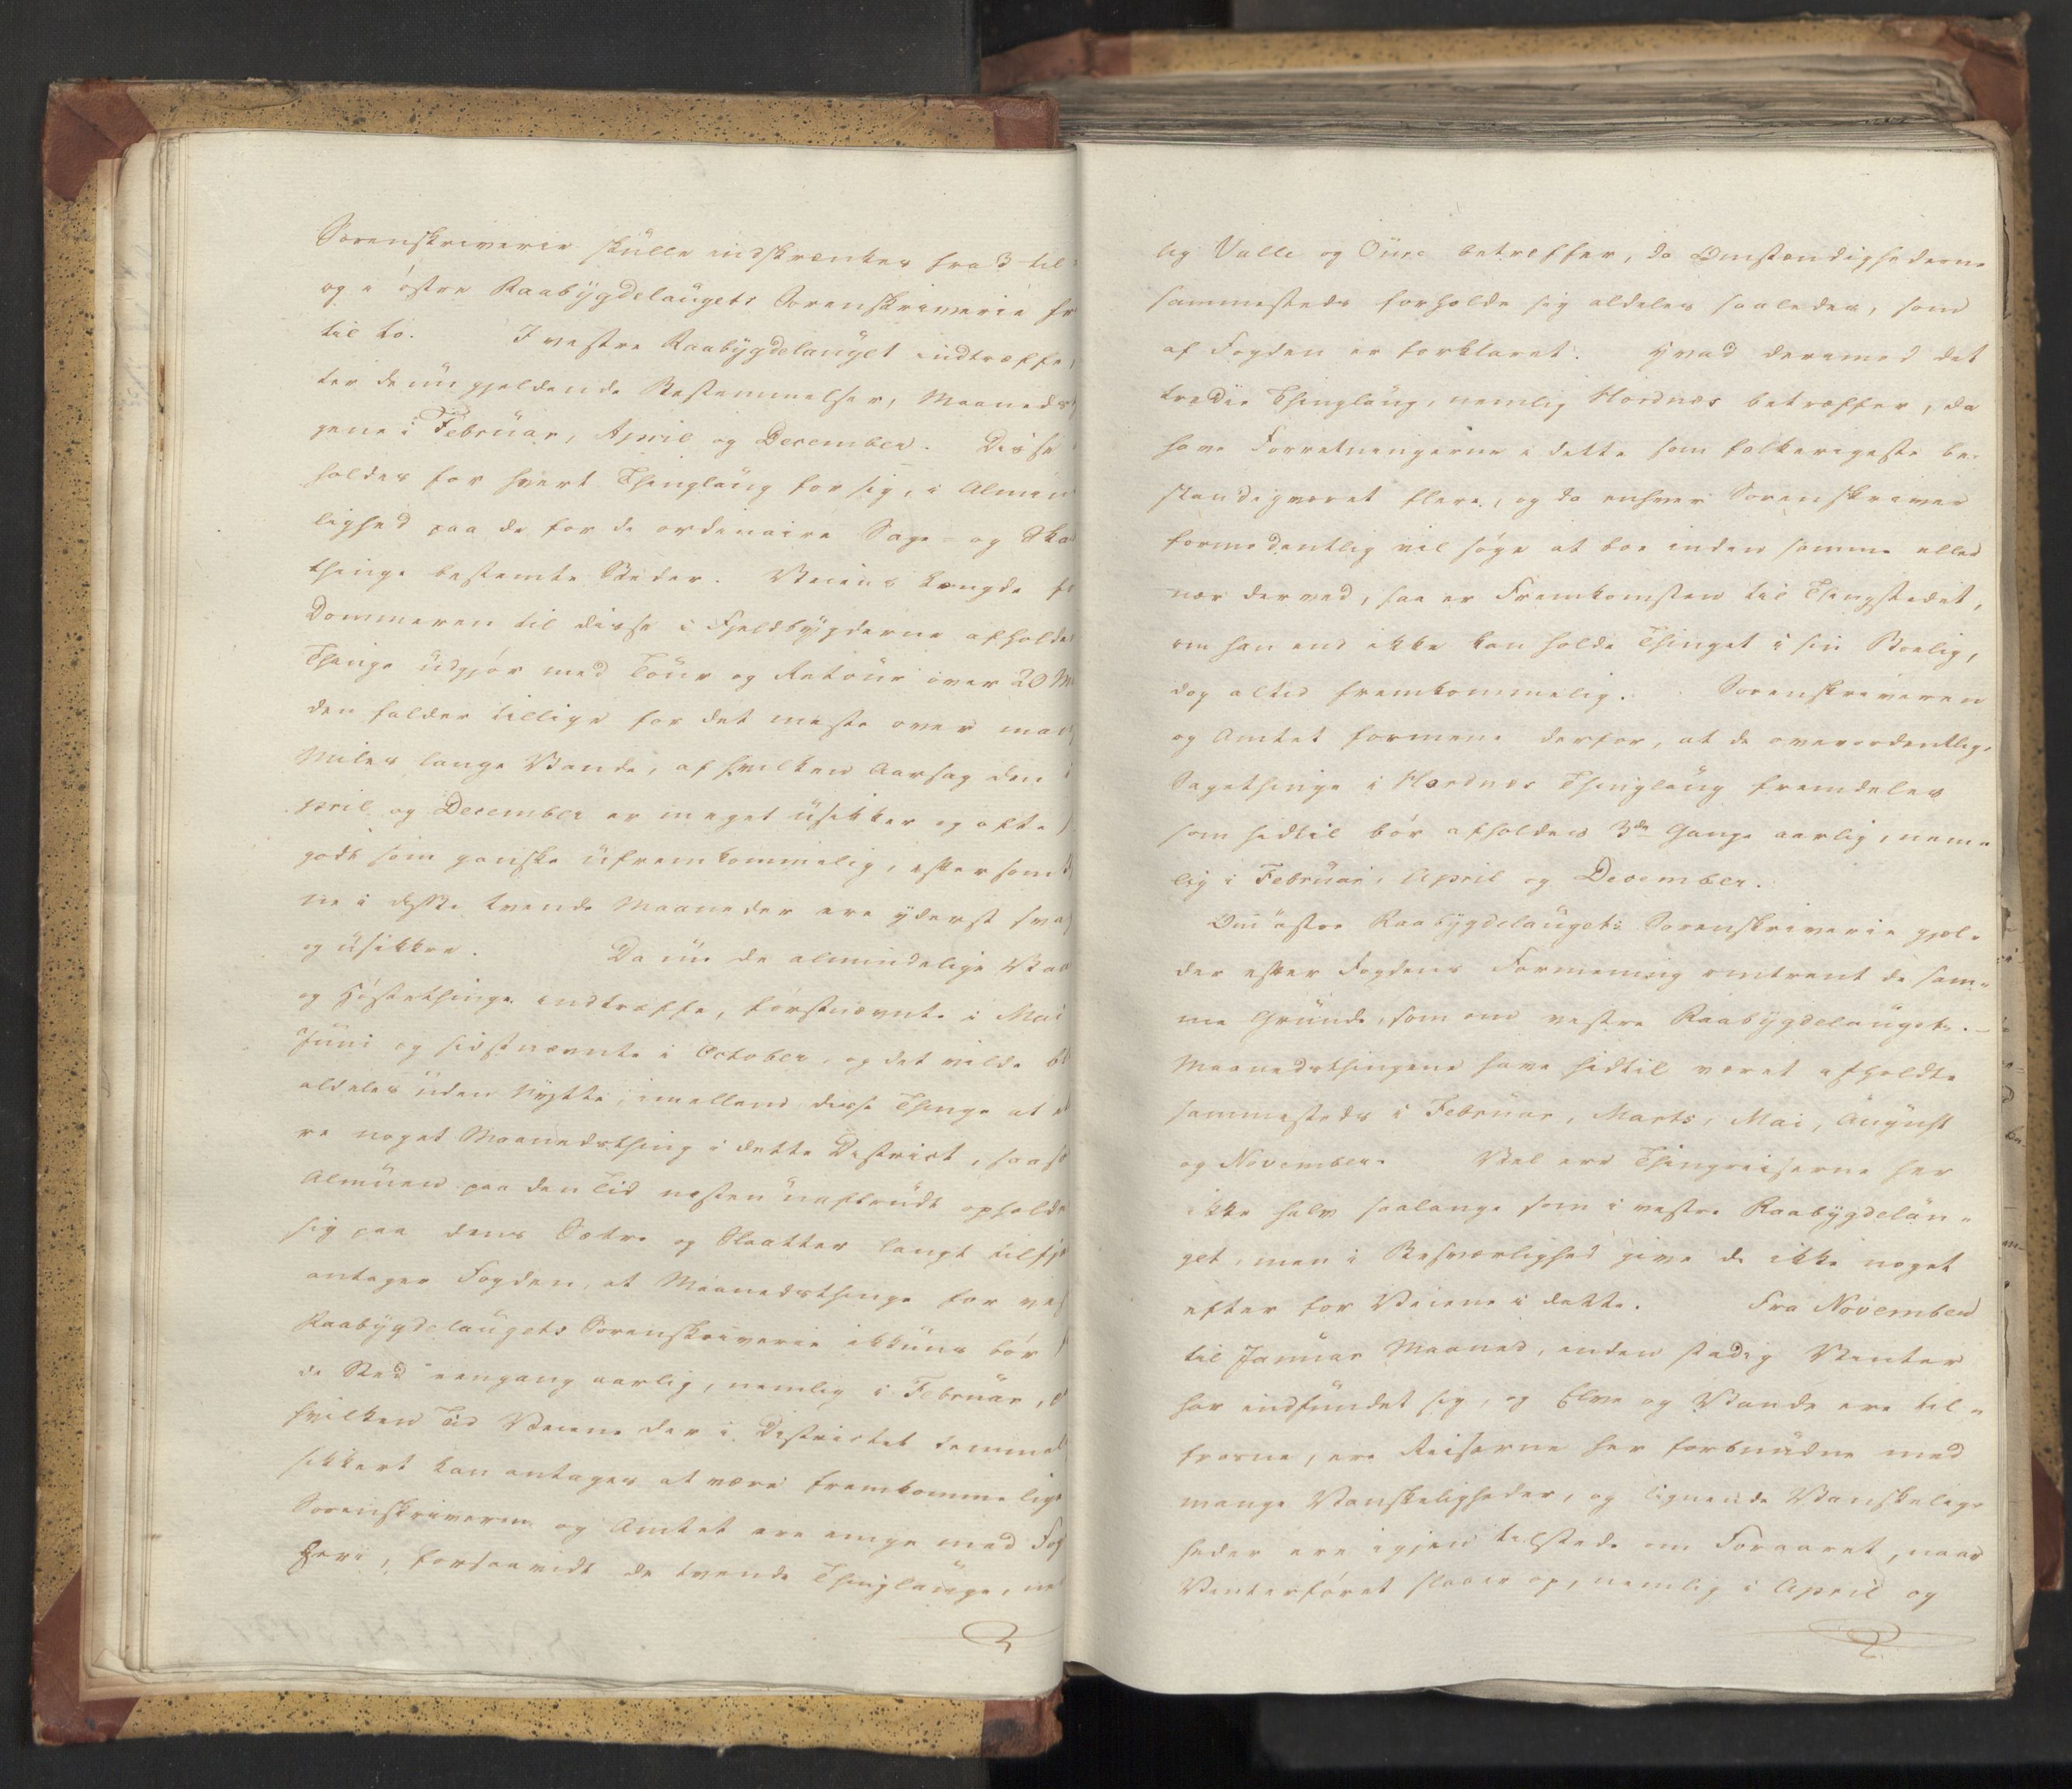 Sorenskriverie skulle indskrænkes fra 3 til
og i østre Raabygdelaugets Sorenskriverie fr
til to. I vestre Raabygdelauget indtræffe
ter de nu gjeldende Bestemmelser, Maaneds
gene i Februar, April og December. Disse
holdes for hvert Thinglaug for sig, i Almin
lighed paa de for de ordinaire Sage- og Ska
thinge bestemte Steder. Veiens Længde fo
Dommeren til disse i Fjeldbygderne afholde
Thinge udgjør med Tour og Retour over 20 M
den falder tillige for det meste over man
Miles lange Vande, af hvilken Aarsag den i
pril og December er meget usikker og ofte s
godt som ganske ufremkommelig, eftersom
ne i disse tvende Maaneder ere yderst sva
og usikkre. Da nu de almindelige Vaa
og Høstethinge indtræffe, førstnævnte i Mai
Juni og sidstnævnte i October, og det vilde bl
aldeles uden Nytte, imellem disse Thinge at
re noget Maanedsthing i dette District, saaso
Almuen paa den Tid næsten uafbrudt opholde
sig paa dens Sætre og Slaatter langt tilfje
antager Fogden, at Maanedsthinge for ves
Raabygdelaugets Sorenskriverie ikkuns bør
de Sted eengang aarlig, nemlig i Februar,
hvilken Tid Veiene der i Districtet temmel
sikkert kan antages at være fremkommelige
Sorenskriveren og Amtet ere enige med Fog
heri, forsaavidt de tvende Thinglauge, ne
lig Valle og Ouse betræffer, da Omstændighederne
sammesteds forholde sig aldeles saaledes, som
af Fogden er forklaret. Hvad deremod det
tredie Thinglaug, nemlig Hordnes betræffer, da
have Forretningerne i dette som folkerigeste be-
standig været flere, og da enhver Sorenskriver
formodentlig vil søge at boe inden samme eller
nær derved, saa er Fremkomsten til Thingstedet,
om han end ikke kan holde Thinget i sin Boelig,
dog altid fremkommelig. Sorenskriveren
og Amtet formene derfor, at de overordentlige
Sagethinge i Hordnes Thinglaug fremdeles
som hidtil bør afholdes 3de Gange aarlig, nem-
lig i Februar, April og December.
Om østre Raabygdelaugets Sorenskriverie gjæl-
der efter Fogdens Formening omtrent de sam-
me Grunde, som om vestre Raabygdelaugets.
Maanedsthingene have hidtil været afholdte
sammesteds i Februar, Marts, Mai, August
og November. Vel ere Thingreiserne her
ikke halv saalange som i vestre Raabygdelau-
get, men i Besværlighed give de ikke noget
efter for Veiene i dette. Fra November
til Januar Maaned, inden stadig Vinter
har indfundet sig, og Elve og Vande ere til-
frosne, ere Reiserne her forbundne med
mange Vanskeligheder, og lignende Vanskelig-
heder ere igjen tilstede om Foraaret, naar
Vinterføret slaaer op, nemlig i April og